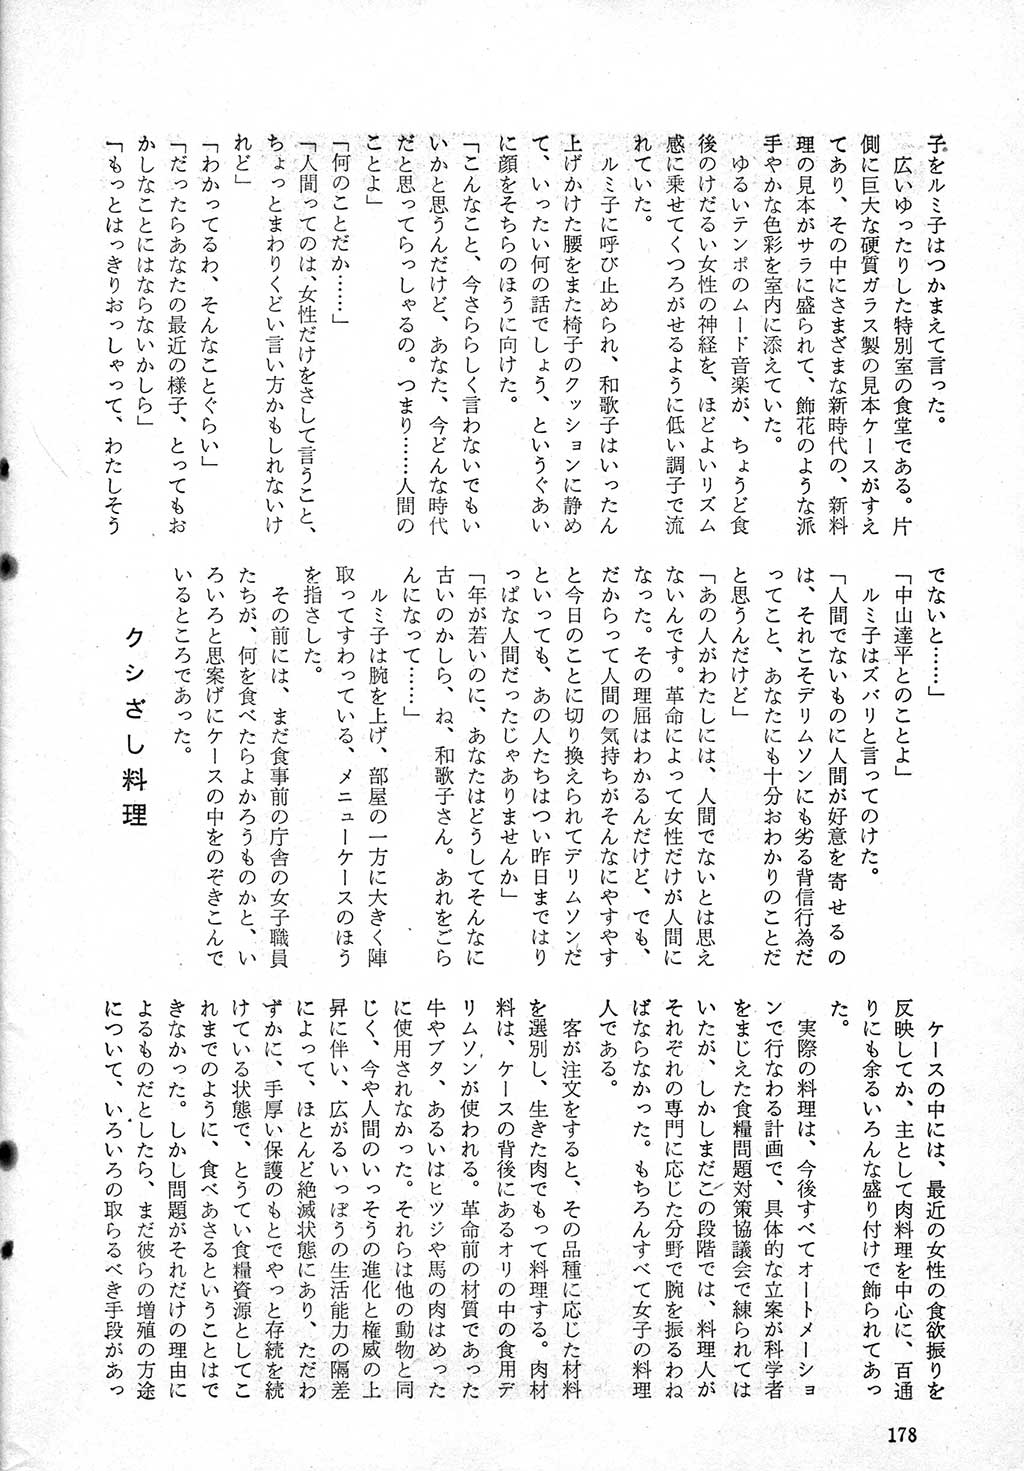 子をルミ子はつかまえて言った。
　広いゆったりした特別室の食堂である。片
側に巨大な硬質ガラス製の見本ケースがすえ
てあり、その中にさまざまな新時代の、新料
理の見本がサラに盛られて、飾花のような派
手やかな色彩を室内に添えていた。
　ゆるいテンポのムード音楽が、ちょうど食
後のけだるい女性の神経を、ほどよいリズム
感に乗せてくつろがせるように低い調子で流
れていた。
　ルミ子に呼び止められ、和歌子はいったん
上げかけた腰をまた椅子のクッションに静め
て、いったい何の話でしょう、というぐあい
に顔をそちらのほうに向けた。
「こんなこと、今さららしく言わないでもい
いかと思うんだけど、あなた、今どんな時代
だと思ってらっしゃるの。つまり……人間の
ことよ」
「何のことだか……」
「人間ってのは、女性だけをさして言うこと、
ちょっとまわりくどい言い方かもしれないけ
れど」
「わかってるわ、そんなことぐらい」
「だったらあなたの最近の様子、とってもお
かしなことにはならないかしら」
「もっとはっきりおっしゃって、わたしそう
でないと……」
「中山達平とのことよ」
　ルミ子はズバリと言ってのけた。
「人間でないものに人間が好意を寄せるの
は、それこそデリムソンにも劣る背信行為だ
ってこと、あなたにも十分おわかりのことだ
と思うんだけど」
「あの人がわたしには、人間でないとは思え
ないんです。革命によって女性だけが人間に
なった。その理屈はわかるんだけど、でも、
だからって人間の気持ちがそんなにやすやす
と今日のことに切り換えられてデリムソンだ
といっても、あの人たちはつい昨日まではり
っぱな人間だったじゃありませんか」
「年が若いのに、あなたはどうしてそんなに
古いのかしら、ね、和歌子さん。あれをごら
んになって……」
　ルミ子は腕を上げ、部屋の一方に大きく陣
取ってすわっている、メニューケースのほう
を指さした。
　その前には、まだ食事前の庁舎の女子職員
たちが、何を食べたらよかろうものかと、い
ろいろと思案げにケースの中をのぞきこんで
いるところであった。
クシざし料理
　ケースの中には、最近の女性の食欲振りを
反映してか、主として肉料理を中心に、百通
りにも余るいろんな盛り付けで飾られてあっ
た。
　実際の料理は、今後すべてオートメーショ
ンで行なわる計画で、具体的な立案が科学者
をまじえた食糧問題対策協議会で練られては
いたが、しかしまだこの段階では、料理人が
それぞれの専門に応じた分野で腕を振るわね
ばならなかった。もちろんすべて女子の料理
人である。
　客が注文をすると、その品種に応じた材料
を選別し、生きた肉でもって料理する。肉材
料は、ケースの背後にあるオリの中の食用デ
リムソンが使われる。革命前の材質であった
牛やブタ、あるいはヒツジや馬の肉はめった
に使用されなかった。それらは他の動物と同
じく、今や人間のいっそうの進化と権威の上
昇に伴い、広がるいっぽうの生活能力の隔差
によって、ほとんど絶滅状態にあり、ただわ
ずかに、手厚い保護のもとでやっと存続を続
けている状態で、とうてい食糧資源としてこ
れまでのように、食べあさるということはで
きなかった。しかし問題がそれだけの理由に
よるものだとしたら、まだ彼らの増殖の方途
について、いろいろの取らるべき手段があっ
178